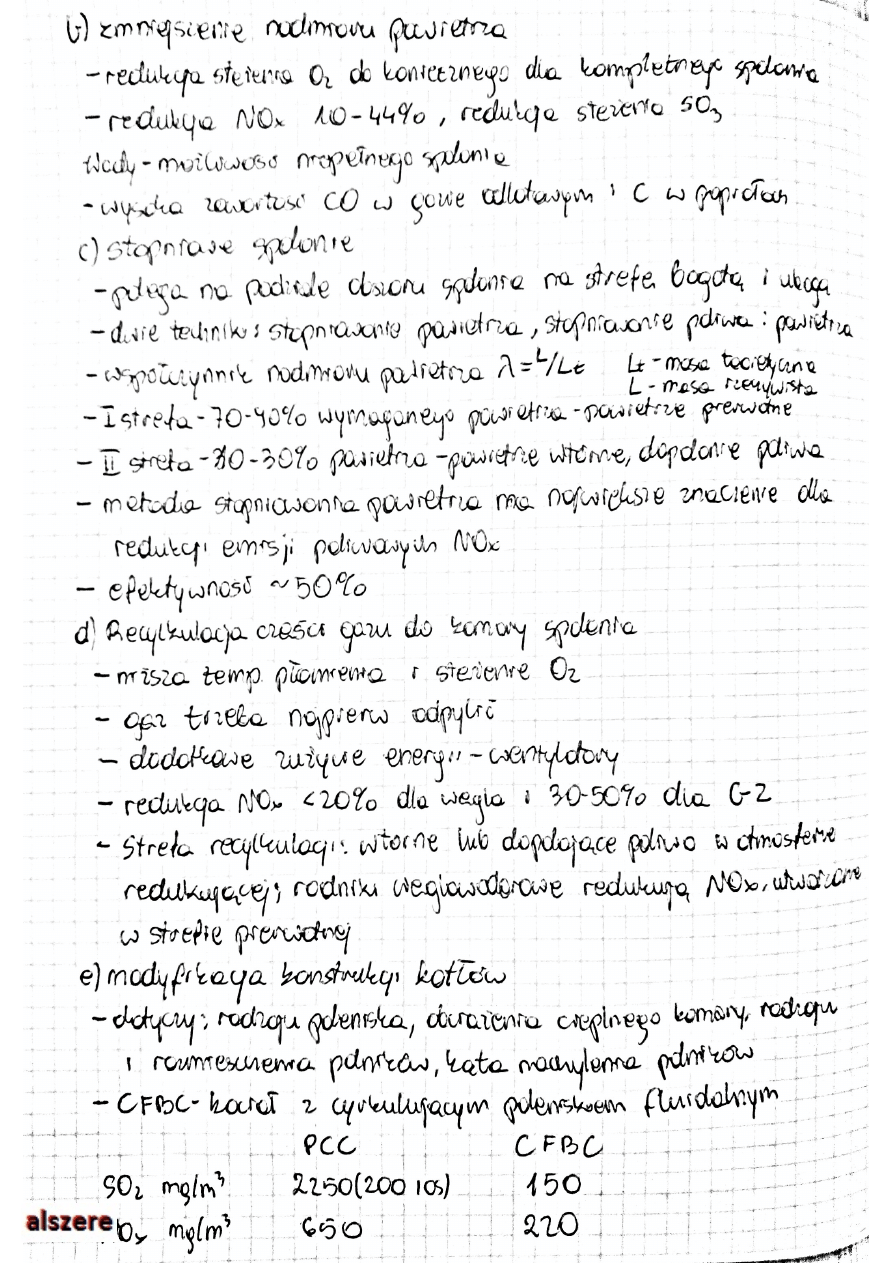 b) zmniejszenie nadmiaru powietrza
- redukcja stężenia O₂ do koniecznego dla kompletnego spalania
- redukcja NOx 10-44%, redukcja stężenia SO₃
Wady - możliwość niepełnego spalania
- wysoka zawartość CO w gazie odlotowym i C w popiołach
c) stopniowe spalanie
- polega na podziale obszaru spalania na strefę bogatą i ubogą
- dwie techniki: stopniowanie powietrza, stopniowanie paliwa i powietrza
- współczynnik nadmiaru powietrza λ = L/Lt Lt - masa teoretyczna
L - masa rzeczywista
- I strefa - 70-90% wymaganego powietrza - powietrze pierwotne
- II strefa - 10-30% powietrza - powietrze wtórne, dopalanie paliwa
- metoda stopniowania powietrza ma największe znaczenie dla
redukcji emisji paliwowych NOx
- efektywność ~50%
d) Recyrkulacja części gazu do komory spalania
- niższa temp. płomienia i stężenie O₂
- gaz trzeba najpierw odpylić
- dodatkowe zużycie energii - wentylatory
- redukcja NOx <20% dla węgla i 30-50% dla G-Z
- Strefa recyrkulacji: wtórne lub dopalające paliwo w atmosferze
redukującej; rodniki węglowodorowe redukują NOx, utworzone
w strefie pierwotnej
e) modyfikacja konstrukcji kotłów
- dotyczy: rodzaju paleniska, obciążenia cieplnego komory, rodzaju
i rozmieszczenia palników, kąta nachylenia palników
- CFBC - kocioł z cyrkulującym paleniskiem fluidalnym
PCC CFBC
SO₂ mg/m³ 2250(200 IOS) 150
Ox mg/m³ 650 220
alszere